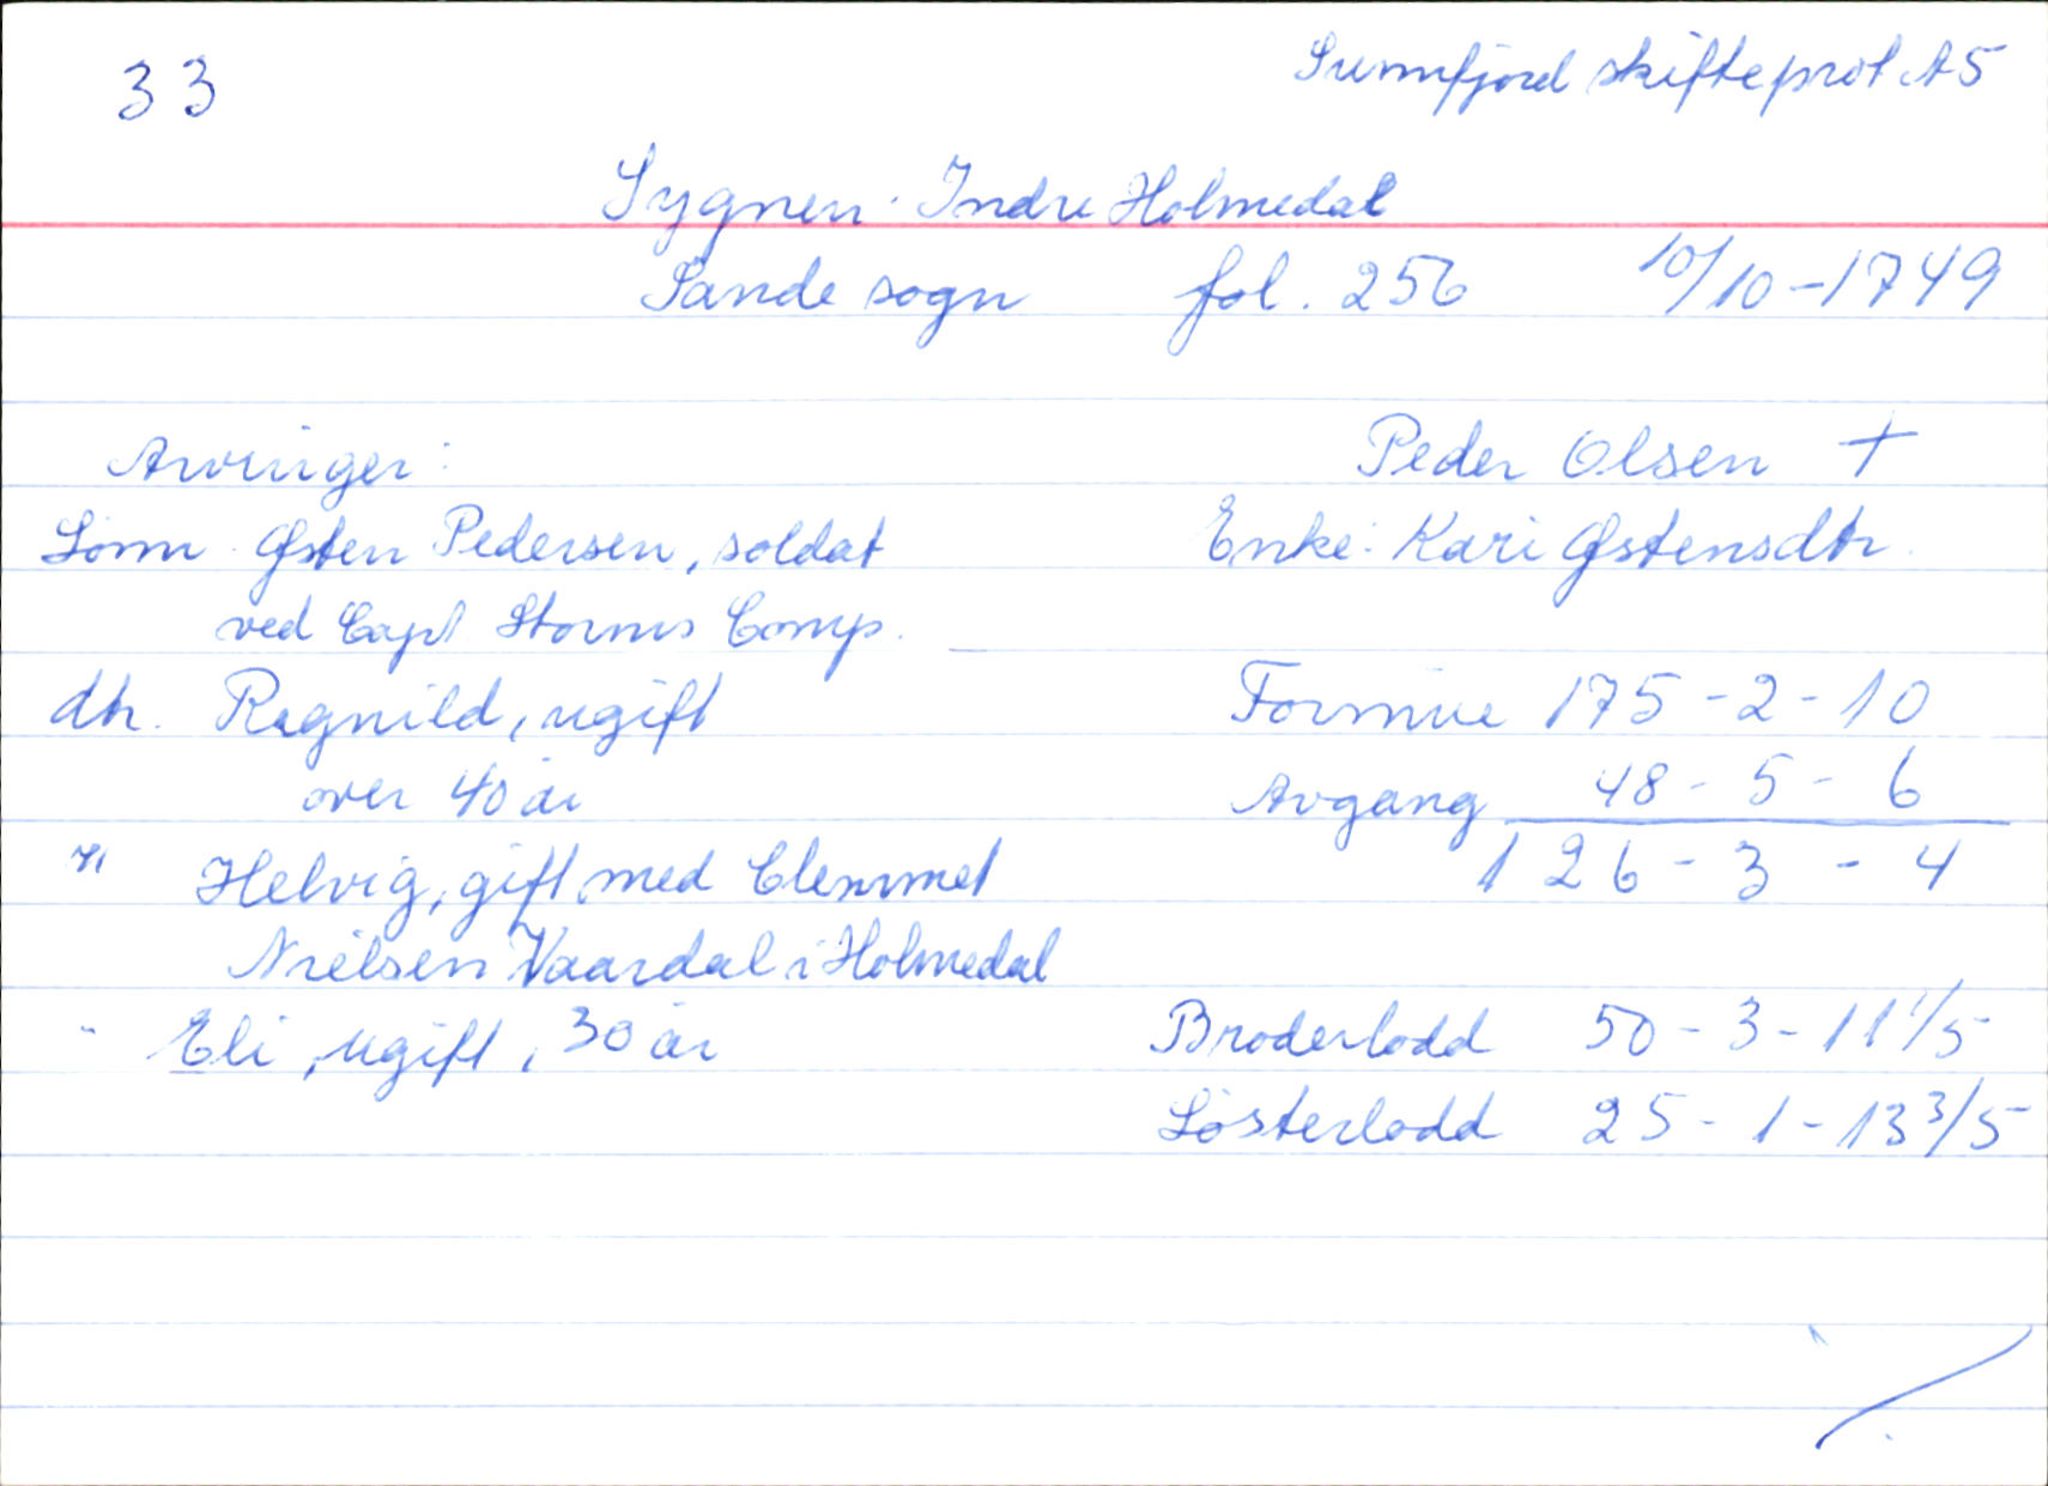 33
Sunnfjord skifteprot A5
Sygnen. Indre Holmedal
Sande sogn fol. 256 10/10-1749
Arvinger:
Sønn. Østen Pedersen, soldat
ved Capt Storms Comp.
dtr. Ragnild, ugift
over 40 år
" Helvig, gift med Clemmet
Nielsen Vaardal i Holmedal
" Eli, ugift, 30 år
Peder Olsen †
Enke: Kari Østensdtr.
Formue 175-2-10
Avgang 48-5-6
126-3-4
Broderlodd 50-3-11 1/5
Søsterlodd 25-1-13 3/5